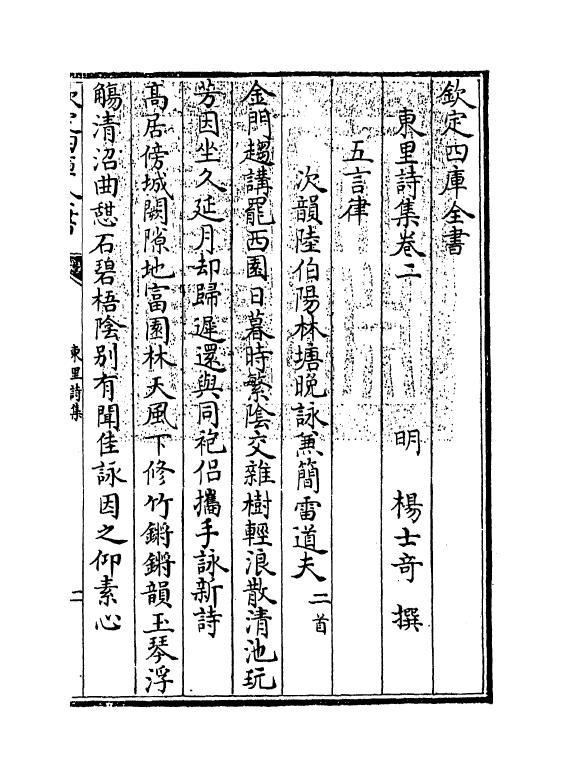 欽定四庫全書
東里詩集卷二
明 楊士奇 撰
五言律
次韻陸伯陽林塘晚詠兼簡雷道夫 二首
金門趨講罷西園日暮時繁陰交雜樹輕浪散清池玩
芳因坐久延月却歸遲還與同袍侶攜手詠新詩
高居傍城闕隙地富園林天風下修竹鏘鏘韻玉琴浮
觴清沼曲憇石碧梧陰別有聞佳詠因之仰素心
東里詩集
二